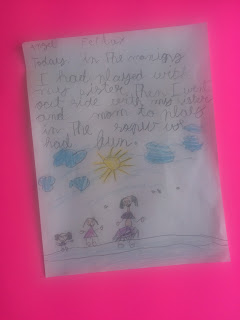 Today in the moring
I had played with
my sister. Then I went
out side with my sister
and mom to play
in the we
had fun.